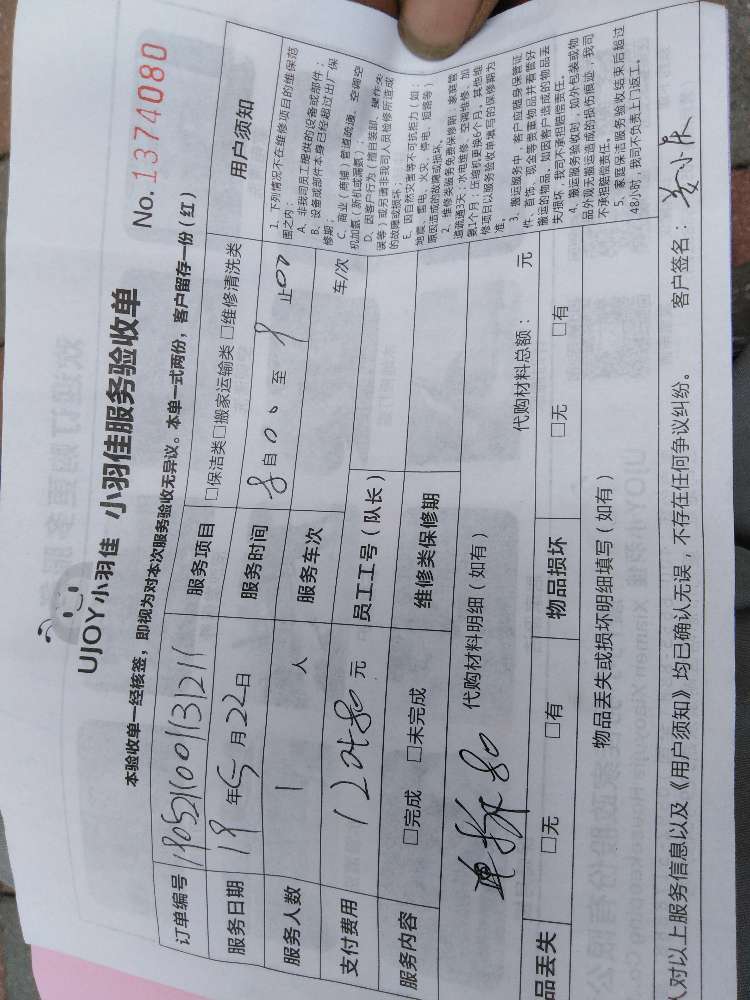 UJOY小羽佳 小羽佳服务验收单
No. 1374080
本验收单一经核签，即视为对本次服务验收无异议。本单一式两份，客户留存一份（红）
订单编号
服务项目 □保洁类□搬家运输类 □维修清洗类
服务日期 19 年 5 月 22 日
服务时间 8 自 00 至 9 止 00
服务人数 1 人
服务车次 车/次
支付费用 元
员工工号（队长）
服务内容 □完成 □未完成
维修类保修期
单拆 80
代购材料明细（如有）
代购材料总额： 元
品丢失 □无 □有
物品损坏 □无 □有
物品丢失或损坏明细填写（如有）
用户须知
1. 下列情况不在维修项目的维保范
围之内：
A. 非我司员工提供的设备或部件；
B. 设备或部件本身已经超过出厂保
修期；
C. 商业（商铺）管道疏通、空调空
机加氨（新机或漏氨）；
D. 因客户行为（擅自装卸、操作失
误等）或另请非我司人员检修所造成
的故障或损坏；
E. 因自然灾害等不可抗拒力（如：
地震、雷电、火灾、停电、短路等）
原因造成的故障或损坏。
2. 维修类服务免费保修期：家庭管
道疏通3天；水电维修、空调维修、加
氨1个月；压缩机更换6个月。其他维
修项目以服务验收单填写的保修期为
准。
3. 搬运服务中，客户应随身保管证
件、首饰、现金等贵重物品并看管好
搬运的物品，如因客户造成的物品丢
失/损坏，我司不承担赔偿责任。
4. 搬运服务验收时，如外包装或物
品外观无搬运造成的损伤痕迹，我司
不承担赔偿责任。
5. 家庭保洁服务验收结束后超过
48小时，我司不负责上门返工。
人对以上服务信息以及《用户须知》均已确认无误，不存在任何争议纠纷。 客户签名：